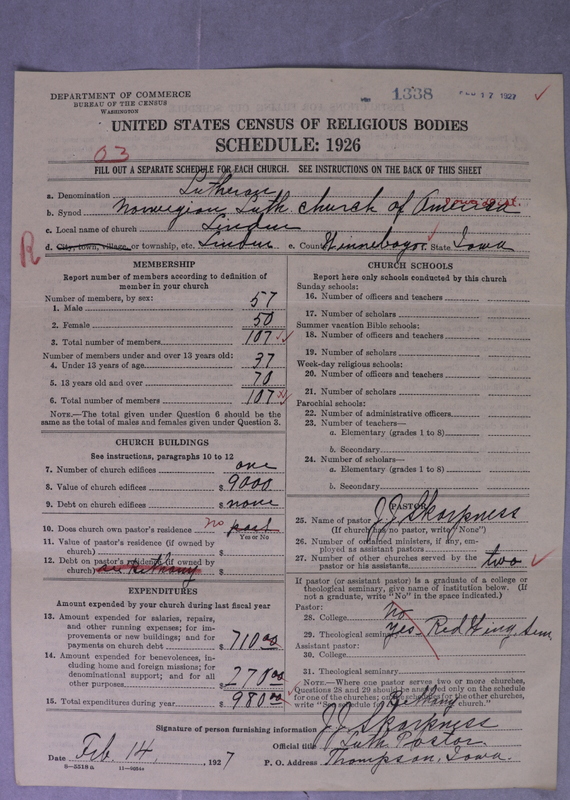 DEPARTMENT OF COMMERCE
BUREAU OF THE CENSUS
WASHINGTON
1338
FEB 17 1927
UNITED STATES CENSUS OF RELIGIOUS BODIES
SCHEDULE: 1926
03
FILL OUT A SEPARATE SCHEDULE FOR EACH CHURCH. SEE INSTRUCTIONS ON THE BACK OF THIS SHEET
a. Denomination Lutheran
b. Synod Norwegian Luth. Church of America
c. Local name of church Linden
R
d. City, town, village, or township, etc. Linden e. County Winnebago State Iowa
MEMBERSHIP
Report number of members according to definition of member in your church
Number of members, by sex:
1. Male 57
2. Female 50
3. Total number of members 107
Number of members under and over 13 years old:
4. Under 13 years of age 37
5. 13 years old and over 70
6. Total number of members 107
NOTE.—The total given under Question 6 should be the
same as the total of males and females given under Question 3.
CHURCH BUILDINGS
See instructions, paragraphs 10 to 12
7. Number of church edifices one
8. Value of church edifices $ 9000
9. Debt on church edifices $ none
10. Does church own pastor's residence no part
Yes or No
11. Value of pastor's residence (if owned by
church) $
12. Debt on pastor's residence (if owned by
church) $ Bethany
EXPENDITURES
Amount expended by your church during last fiscal year
13. Amount expended for salaries, repairs,
and other running expenses; for im-
provements or new buildings; and for
payments on church debt $ 710.00
14. Amount expended for benevolences, in-
cluding home and foreign missions; for
denominational support; and for all
other purposes $ 270.00
15. Total expenditures during year $ 980.00
CHURCH SCHOOLS
Report here only schools conducted by this church
Sunday schools:
16. Number of officers and teachers
17. Number of scholars
Summer vacation Bible schools:
18. Number of officers and teachers
19. Number of scholars
Week-day religious schools:
20. Number of officers and teachers
21. Number of scholars
Parochial schools:
22. Number of administrative officers
23. Number of teachers—
a. Elementary (grades 1 to 8)
b. Secondary
24. Number of scholars—
a. Elementary (grades 1 to 8)
b. Secondary
PASTOR
25. Name of pastor J. J. Skarpness
(If church has no pastor, write "None")
26. Number of ordained ministers, if any, em-
ployed as assistant pastors
27. Number of other churches served by the
pastor or his assistants two
If pastor (or assistant pastor) is a graduate of a college or
theological seminary, give name of institution below. (If
not a graduate, write "No" in the space indicated.)
Pastor:
28. College No
29. Theological seminary Yes. Red Wing, Sem
Assistant pastor:
30. College
31. Theological seminary
NOTE.—Where one pastor serves two or more churches,
Questions 28 and 29 should be answered only on the schedule
for one of the churches; on the schedules for the other churches,
write "See schedule for Bethany church."
Signature of person furnishing information J. J. Skarpness
Official title Luth Pastor
Date Feb. 14, 1927
P. O. Address Thompson, Iowa.
8—5518a 11—9034a